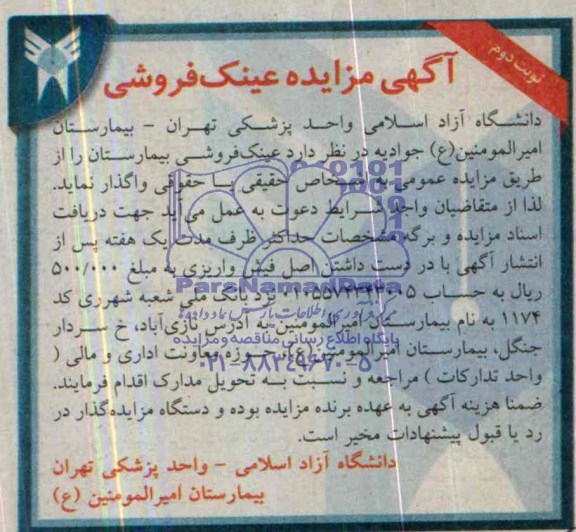 نوبت دوم
آگهی مزایده عینک‌فروشی
دانشگاه آزاد اسلامی واحد پزشکی تهران - بیمارستان
امیرالمومنین(ع) جوادیه در نظر دارد عینک‌فروشی بیمارستان را از
طریق مزایده عمومی به اشخاص حقیقی یا حقوقی واگذار نماید.
لذا از متقاضیان واجد شرایط دعوت به عمل می‌آید جهت دریافت
اسناد مزایده و برگه مشخصات حداکثر ظرف مدت یک هفته پس از
انتشار آگهی با در دست داشتن اصل فیش واریزی به مبلغ ۵۰۰/۰۰۰
ParsNamadData
ریال به حساب نزد بانک ملی شعبه شهرری کد
۱۱۷۴ به نام بیمارستان امیرالمومنین به آدرس نازی‌آباد، خ سردار
پایگاه اطلاع رسانی مناقصه و مزایده
جنگل، بیمارستان امیرالمومنین(ع)، حوزه معاونت اداری و مالی (
۰۲۱-۸۸۳۴۹۶۷۰-۵
واحد تدارکات ) مراجعه و نسبت به تحویل مدارک اقدام فرمایند.
ضمنا هزینه آگهی به عهده برنده مزایده بوده و دستگاه مزایده‌گذار در
رد یا قبول پیشنهادات مخیر است.
دانشگاه آزاد اسلامی - واحد پزشکی تهران
بیمارستان امیرالمومنین (ع)